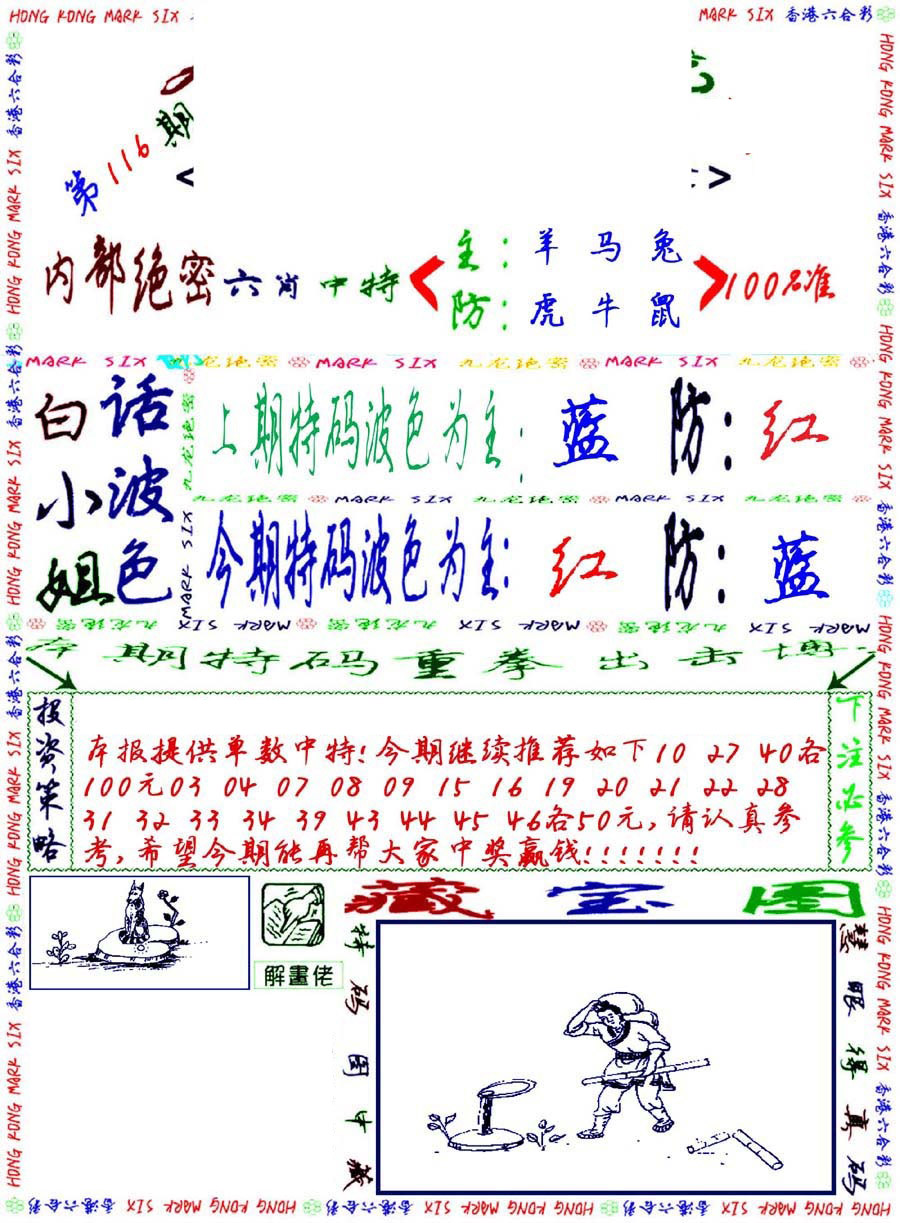 HONG KONG MARK SIX
MARK SIX 香港六合彩
第116期
< >
内部绝密六肖中特
主：羊 马 兔
防：虎 牛 鼠
100%准
MARK SIX 九龙绝密 MARK SIX 九龙绝密 MARK SIX 九龙绝密
白话
小波
姐色
上期特码波色为主：蓝 防：红
九龙绝密 MARK SIX 九龙绝密 MARK SIX 九龙绝密
今期特码波色为主：红 防：蓝
九龙绝密 MARK SIX 九龙绝密 MARK SIX 九龙绝密 MARK SIX
本期特码重拳出击博
投资策略
本报提供单数中特！今期继续推荐如下10 27 40各
100元03 04 07 08 09 15 16 19 20 21 22 28
31 32 33 34 39 43 44 45 46各50元，请认真参
考，希望今期能再帮大家中奖赢钱！！！！！！！
下注必参
解畫佬
藏宝图
特码图中藏
慧眼得真码
HONG KONG MARK SIX 香港六合彩